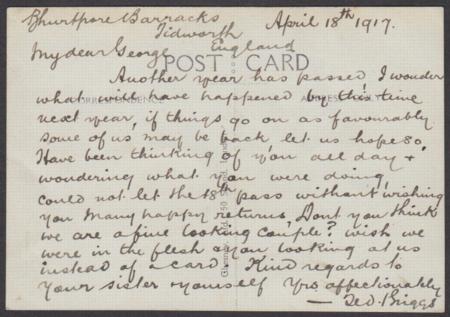 Bhurtpore Barracks April 18th 1917.
Tidworth
England
My dear George
POST CARD
Another year has passed, I wonder
what will have happened by this time
CORRESPONDENCE ADDRESS ONLY
next year, if things go on as favourably
some of us may be back, let us hope so.
Have been thinking of you all day &
wondering what you were doing,
could not let the 18th pass without wishing
you many happy returns. Dont you think
we are a fine looking couple? wish we
were in the flesh & you looking at us
instead of a card. Kind regards to
your sister & yourself Yrs affectionately
— Ted. Briggs